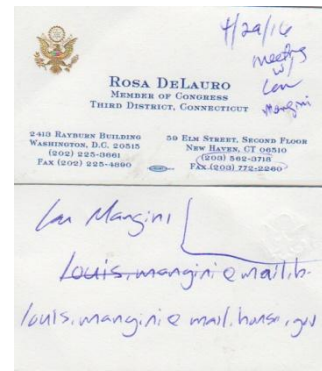 4/29/16
meeting
w/
Lou
Mangini
ROSA DELAURO
MEMBER OF CONGRESS
THIRD DISTRICT, CONNECTICUT
2413 RAYBURN BUILDING
WASHINGTON, D.C. 20515
(202) 225-3661
FAX (202) 225-4890
59 ELM STREET, SECOND FLOOR
NEW HAVEN, CT 06510
(203) 562-3718
FAX (203) 772-2260
Lou Mangini
louis.mangini@mail.h
louis.mangini@mail.house.gov